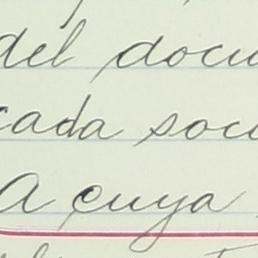 del docu
cada soci
A cuya